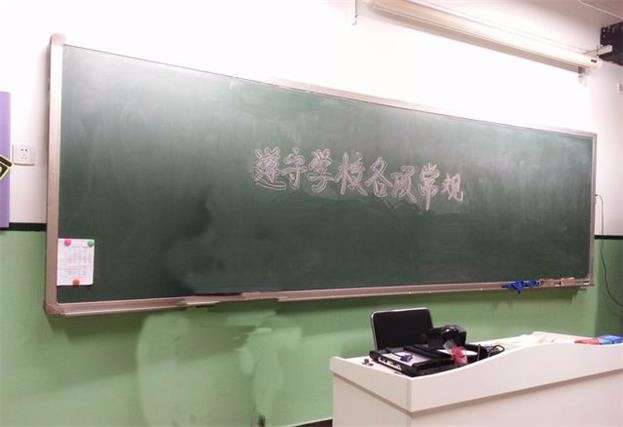 遵守学校各项常规